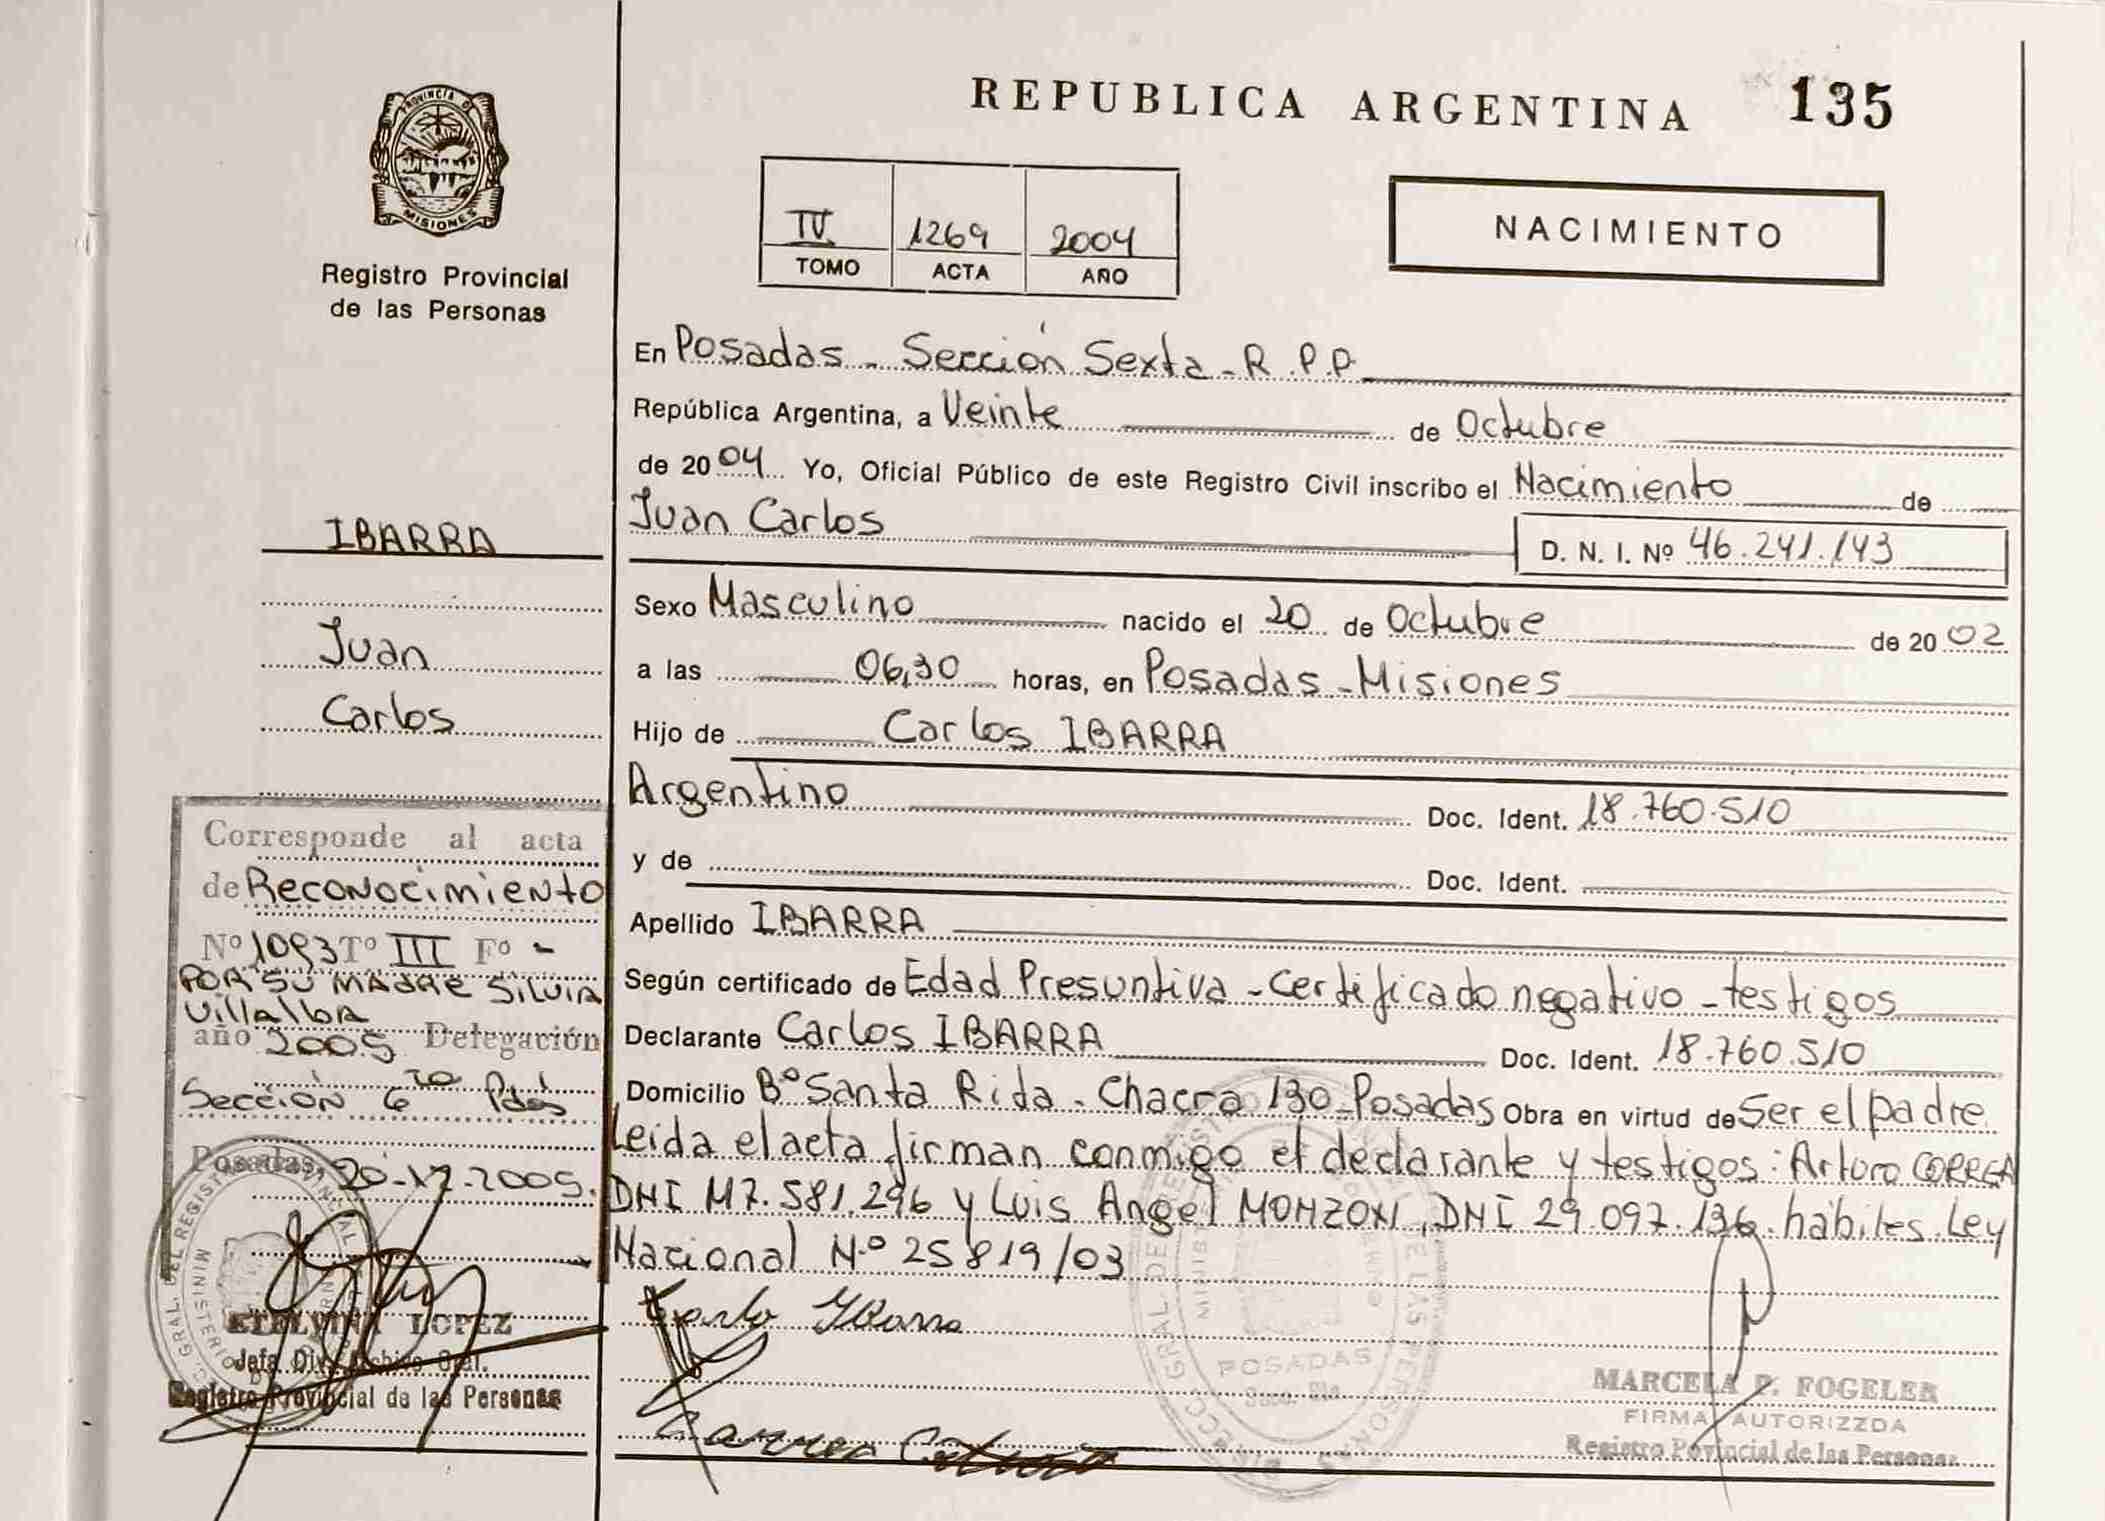 PROVINCIA DE
MISIONES
Registro Provincial
de las Personas
REPUBLICA ARGENTINA 135
IV 1269 2004
TOMO ACTA AÑO
NACIMIENTO
En Posadas - Sección Sexta - R.P.P.
República Argentina, a Veinte de Octubre
de 2004 Yo, Oficial Público de este Registro Civil inscribo el Nacimiento de
Juan Carlos
D. N. I. Nº 46.241.143
Sexo Masculino nacido el 20 de Octubre de 2002
a las 06,30 horas, en Posadas - Misiones
Hijo de Carlos IBARRA
Argentino Doc. Ident. 18.760.510
y de Doc. Ident.
Apellido IBARRA
Según certificado de Edad Presuntiva - certificado negativo - testigos
Declarante Carlos IBARRA Doc. Ident. 18.760.510
Domicilio Bº Santa Rida - Chacra 130 - Posadas Obra en virtud de Ser el padre
Leida el acta firman conmigo el declarante y testigos: Arturo CORREA
DNI M7.581.296 y Luis Angel MONZON, DNI 29.097.136. habiles. Ley
Nacional N.º 25819/03
IBARRA
Juan
Carlos
Corresponde al acta
de Reconocimiento
Nº 1093 Tº III Fº -
POR SU MADRE SILVIA
Villalba
año 2005 Delegación
Sección 6 Pdas
Posadas, 20-12-2005.
ETELVINA LOPEZ
Jefa Div. Archivo Gral.
Registro Provincial de las Personas
Carlo Ybarra
Correa
POSADAS
MARCELA P. FOGELER
FIRMA AUTORIZZDA
Registro Povincial de las Personas